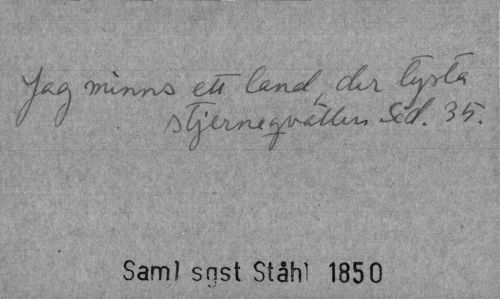 Jag minns ett land, der tysta
stjerneqvällen Sid. 35.
Saml sgst Ståhl 1850